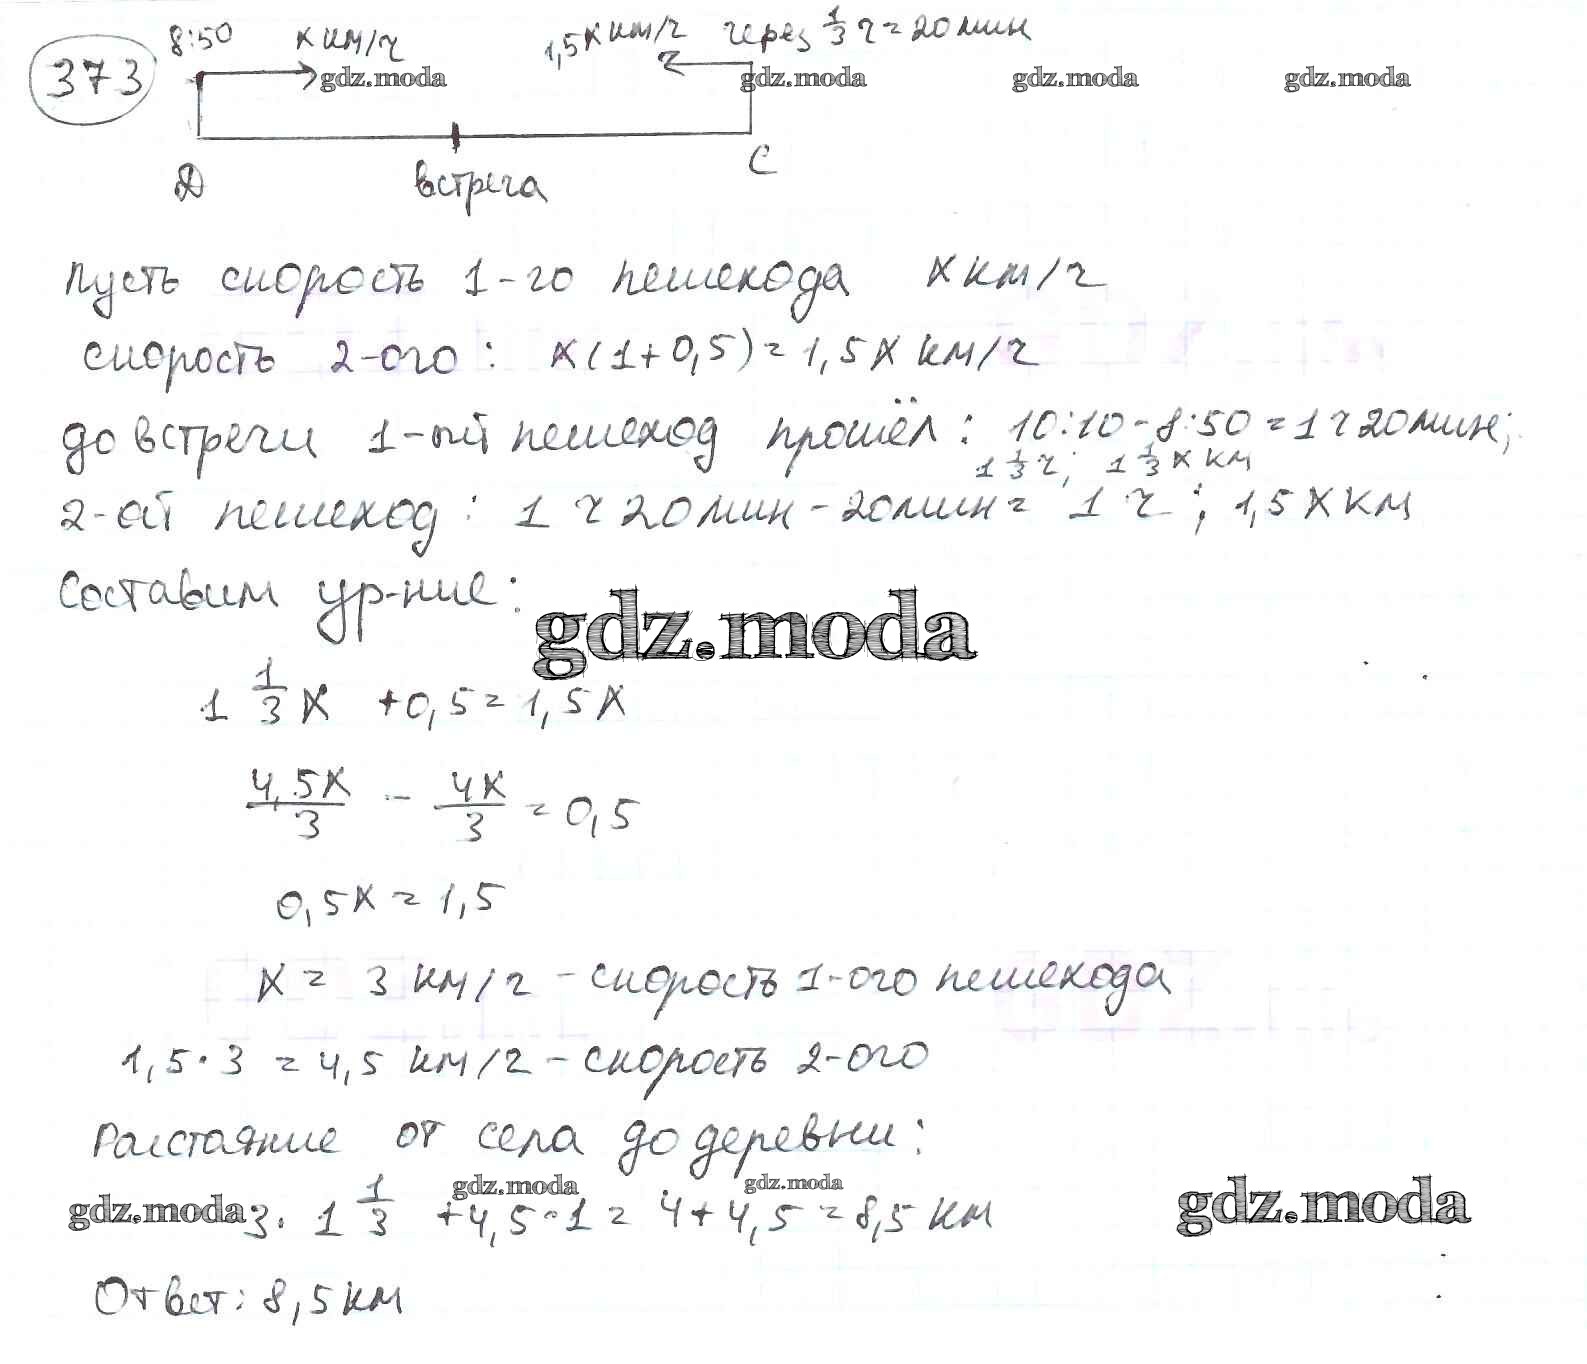 373
8:50 х км/ч 1,5х км/ч через 1/3 ч = 20 мин
gdz.moda gdz.moda gdz.moda gdz.moda
Д встреча С
Пусть скорость 1-го пешехода х км/ч
скорость 2-ого: х(1+0,5)=1,5х км/ч
до встречи 1-ый пешеход прошёл: 10:10-8:50=1ч20мин;
1 1/3 ч; 1 1/3 х км
2-ой пешеход: 1 ч 20мин-20мин= 1 ч; 1,5х км
Составим ур-ние:
gdz.moda
1 1/3 х +0,5=1,5х
4,5х/3 - 4х/3 = 0,5
0,5х = 1,5
х = 3 км/ч - скорость 1-ого пешехода
1,5·3 = 4,5 км/ч - скорость 2-ого
Расстояние от села до деревни:
gdz.moda gdz.moda gdz.moda gdz.moda
3·1 1/3 +4,5·1= 4+4,5=8,5 км
Ответ: 8,5км